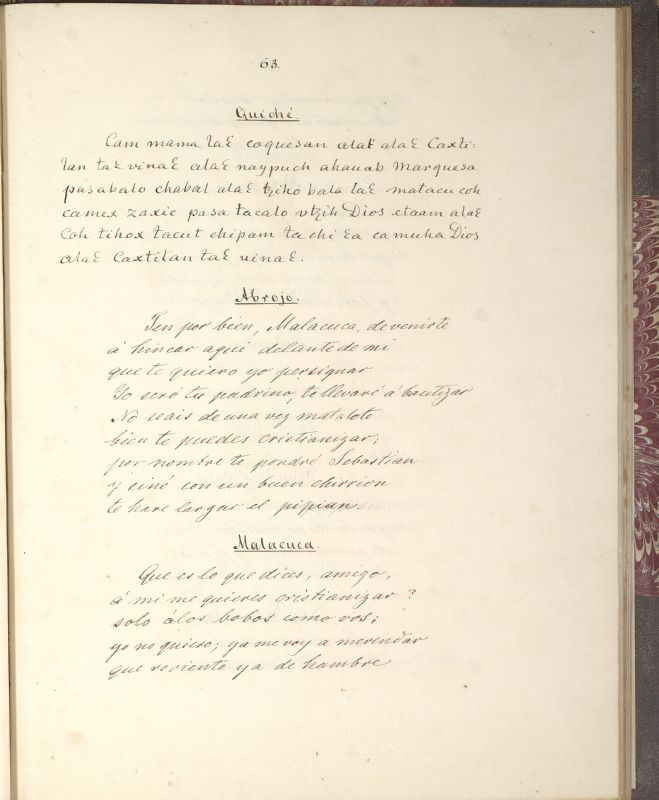 63.
Quiché.
Cam mama laꜪ coquesan alaꜪ alaꜪ Caxti=
lan taꜪ vinaꜪ alaꜪ naypuch ahauab Marquesa
pasabalo chabal alaꜪ tziho bala laꜪ matacu coh
camex zaxic pasa tacalo vtzih Dios etaam alaꜪ
Coh tihox tacut chipam ta chi Ꜫa ca muha Dios
alaꜪ Caxtilan taꜪ vinaꜪ.
Abrojo.
Ten por bien, Malacuca, de venirte
á hincar aqui delante de mi
que te quiero yo persignar
Yo seré tu padrino, te llevaré á bautizar
No seais de una vez matalote
bien te puedes cristianizar;
por nombre te pondré Sebastian
y ciné con un buen chirrion
te hare largar el pipian
Malacuca.
Que es lo que dices, amigo,
á mi me quieres cristianizar?
solo álos bobos como vos;
yo no quiero; ya me voy a merendar
que reviento ya de hambre